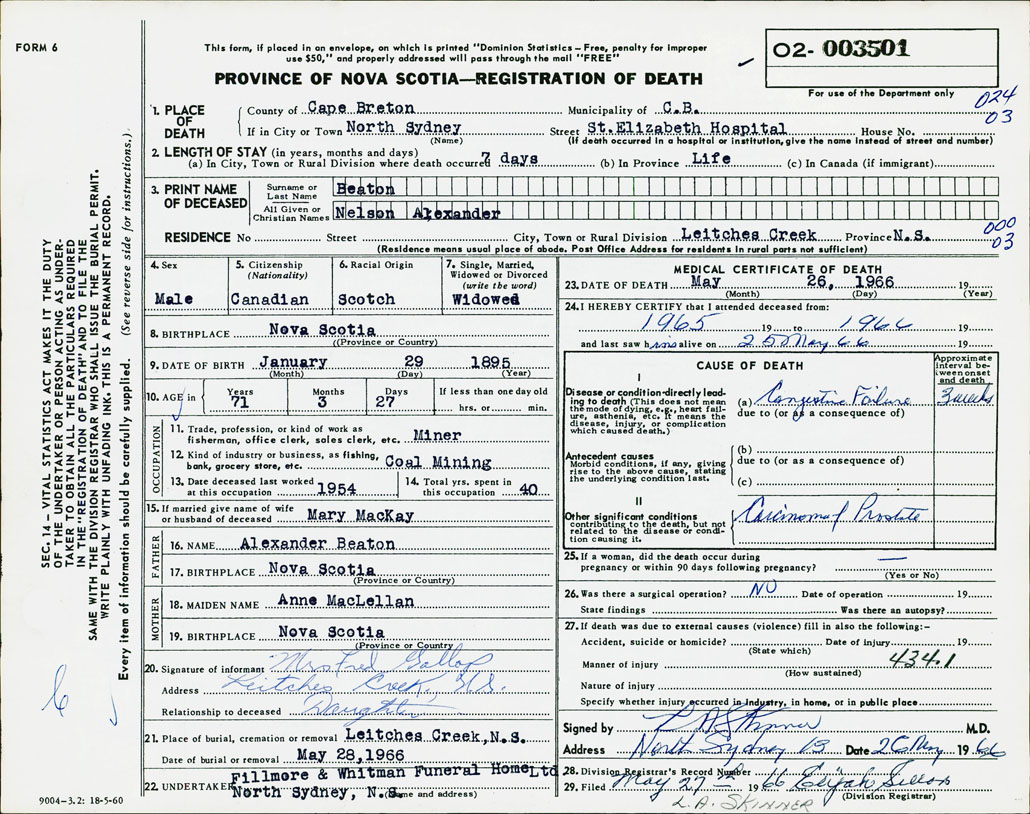 FORM 6
This form, if placed in an envelope, on which is printed "Dominion Statistics – Free, penalty for improper
use $50," and properly addressed will pass through the mail "FREE"
PROVINCE OF NOVA SCOTIA—REGISTRATION OF DEATH
02- 003501
For use of the Department only
024
03
1. PLACE OF DEATH
County of Cape Breton Municipality of C.B.
If in City or Town North Sydney Street St.Elizabeth Hospital House No.
(Name) (If death occurred in a hospital or institution, give the name instead of street and number)
2. LENGTH OF STAY (in years, months and days)
(a) In City, Town or Rural Division where death occurred 7 days (b) In Province Life (c) In Canada (if immigrant)
3. PRINT NAME OF DECEASED
Surname or Last Name Beaton
All Given or Christian Names Nelson Alexander
000
03
RESIDENCE No Street City, Town or Rural Division Leitches Creek Province N.S.
(Residence means usual place of abode. Post Office Address for residents in rural parts not sufficient)
SEC. 14 – VITAL STATISTICS ACT MAKES IT THE DUTY
OF THE UNDERTAKER OR PERSON ACTING AS UNDER-
TAKER TO OBTAIN ALL THE PARTICULARS REQUIRED
IN THE "REGISTRATION OF DEATH" AND TO FILE THE
SAME WITH THE DIVISION REGISTRAR WHO SHALL ISSUE THE BURIAL PERMIT.
WRITE PLAINLY WITH UNFADING INK. THIS IS A PERMANENT RECORD.
Every item of information should be carefully supplied. (See reverse side for instructions.)
4. Sex
Male
5. Citizenship
(Nationality)
Canadian
6. Racial Origin
Scotch
7. Single, Married,
Widowed or Divorced
(write the word)
Widowed
8. BIRTHPLACE Nova Scotia
(Province or Country)
9. DATE OF BIRTH January 29 1895
(Month) (Day) (Year)
10. AGE in Years Months Days If less than one day old
71 3 27 hrs. or min.
OCCUPATION
11. Trade, profession, or kind of work as
fisherman, office clerk, sales clerk, etc. Miner
12. Kind of industry or business, as fishing,
bank, grocery store, etc. Coal Mining
13. Date deceased last worked
at this occupation 1954
14. Total yrs. spent in
this occupation 40
15. If married give name of wife
or husband of deceased Mary MacKay
FATHER
16. NAME Alexander Beaton
17. BIRTHPLACE Nova Scotia
(Province or Country)
MOTHER
18. MAIDEN NAME Anne MacLellan
19. BIRTHPLACE Nova Scotia
(Province or Country)
20. Signature of informant Mrs Fred Gallop
Address Leitches Creek, N.S.
Relationship to deceased Daughter
21. Place of burial, cremation or removal Leitches Creek,N.S.
Date of burial or removal May 28,1966
22. UNDERTAKER Fillmore & Whitman Funeral Home Ltd
North Sydney, N.S. (Name and address)
MEDICAL CERTIFICATE OF DEATH
23. DATE OF DEATH May 26, 1966 19
(Month) (Day) (Year)
24. I HEREBY CERTIFY that I attended deceased from:
1965 19 to 1966 19
and last saw him alive on 25 May 66 19
CAUSE OF DEATH
Approximate
interval be-
tween onset
and death
I
Disease or condition directly lead-
ing to death (This does not mean
the mode of dying, e.g., heart fail-
ure, asthenia, etc. It means the
disease, injury, or complication
which caused death.)
(a) Congestive Failure 3 weeks
due to (or as a consequence of)
Antecedent causes
Morbid conditions, if any, giving
rise to the above cause, stating
the underlying condition last.
(b)
due to (or as a consequence of)
(c)
II
Other significant conditions
contributing to the death, but not
related to the disease or condi-
tion causing it.
Carcinoma of Prostate
25. If a woman, did the death occur during
pregnancy or within 90 days following pregnancy? —
(Yes or No)
26. Was there a surgical operation? NO Date of operation 19
State findings Was there an autopsy?
27. If death was due to external causes (violence) fill in also the following:–
Accident, suicide or homicide? Date of injury 19
(State which)
Manner of injury 434.1
(How sustained)
Nature of injury
Specify whether injury occurred in industry, in home, or in public place
Signed by L A Skinner M.D.
Address North Sydney Date 26 May 1966
28. Division Registrar's Record Number
29. Filed May 27th 1966 Elijah
(Division Registrar)
L.A. SKINNER
9004–3.2: 18-5-60